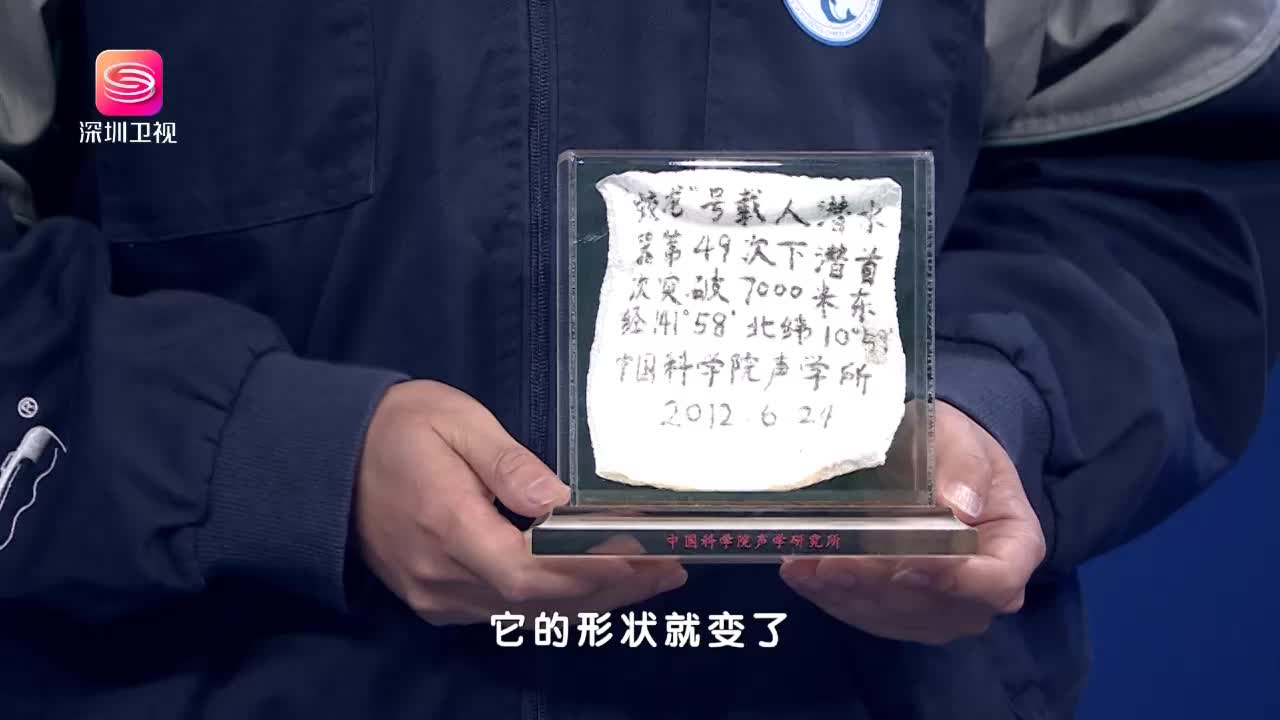 深圳卫视
蛟龙"号载人潜水
器第49次下潜首
次突破7000米东
经141°58'北纬10°59'
中国科学院声学所
2012.6 24
中国科学院声学研究所
它的形状就变了
®